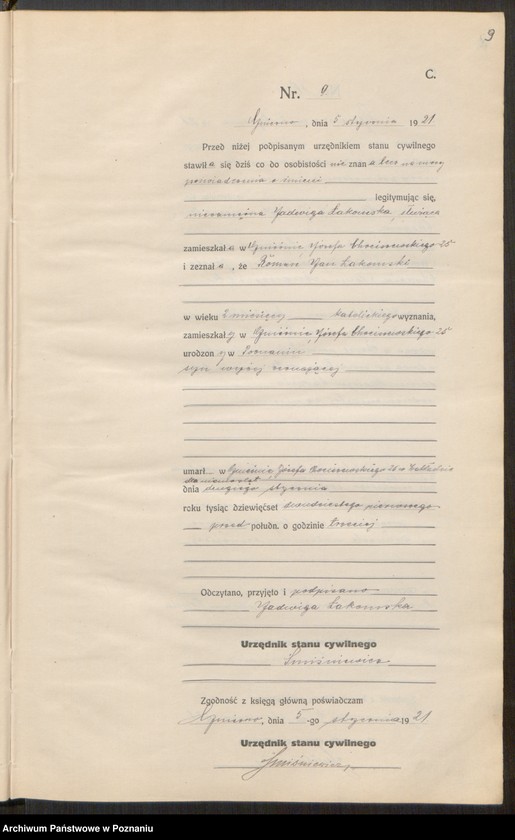 9
C.
Nr. 9
Gniezno, dnia 5 stycznia 1921
Przed niżej podpisanym urzędnikiem stanu cywilnego
stawiła się dziś co do osobistości nie znana lecz na mocy
poświadczenia o śmierci
legitymując się,
niezamężna Jadwiga Łakomska, służąca
zamieszkała w Gnieźnie Józefa 25
i zeznała, że Roman Jan Łakomski
w wieku 2 miesięcy katolickiego wyznania,
zamieszkały w Gnieźnie, Józefa 25
urodzony w Poznaniu
syn wyżej zeznającej
umarł w Gnieźnie Józefa 26 w Zakładzie
dla niemowląt
dnia drugiego stycznia
roku tysiąc dziewięćset dwudziestego pierwszego
przed połudn. o godzinie trzeciej
Odczytano, przyjęto i podpisano
Jadwiga Łakomska
Urzędnik stanu cywilnego
Zgodność z księgą główną poświadczam
Gniezno, dnia 5-go stycznia 1921
Urzędnik stanu cywilnego
Archiwum Państwowe w Poznaniu